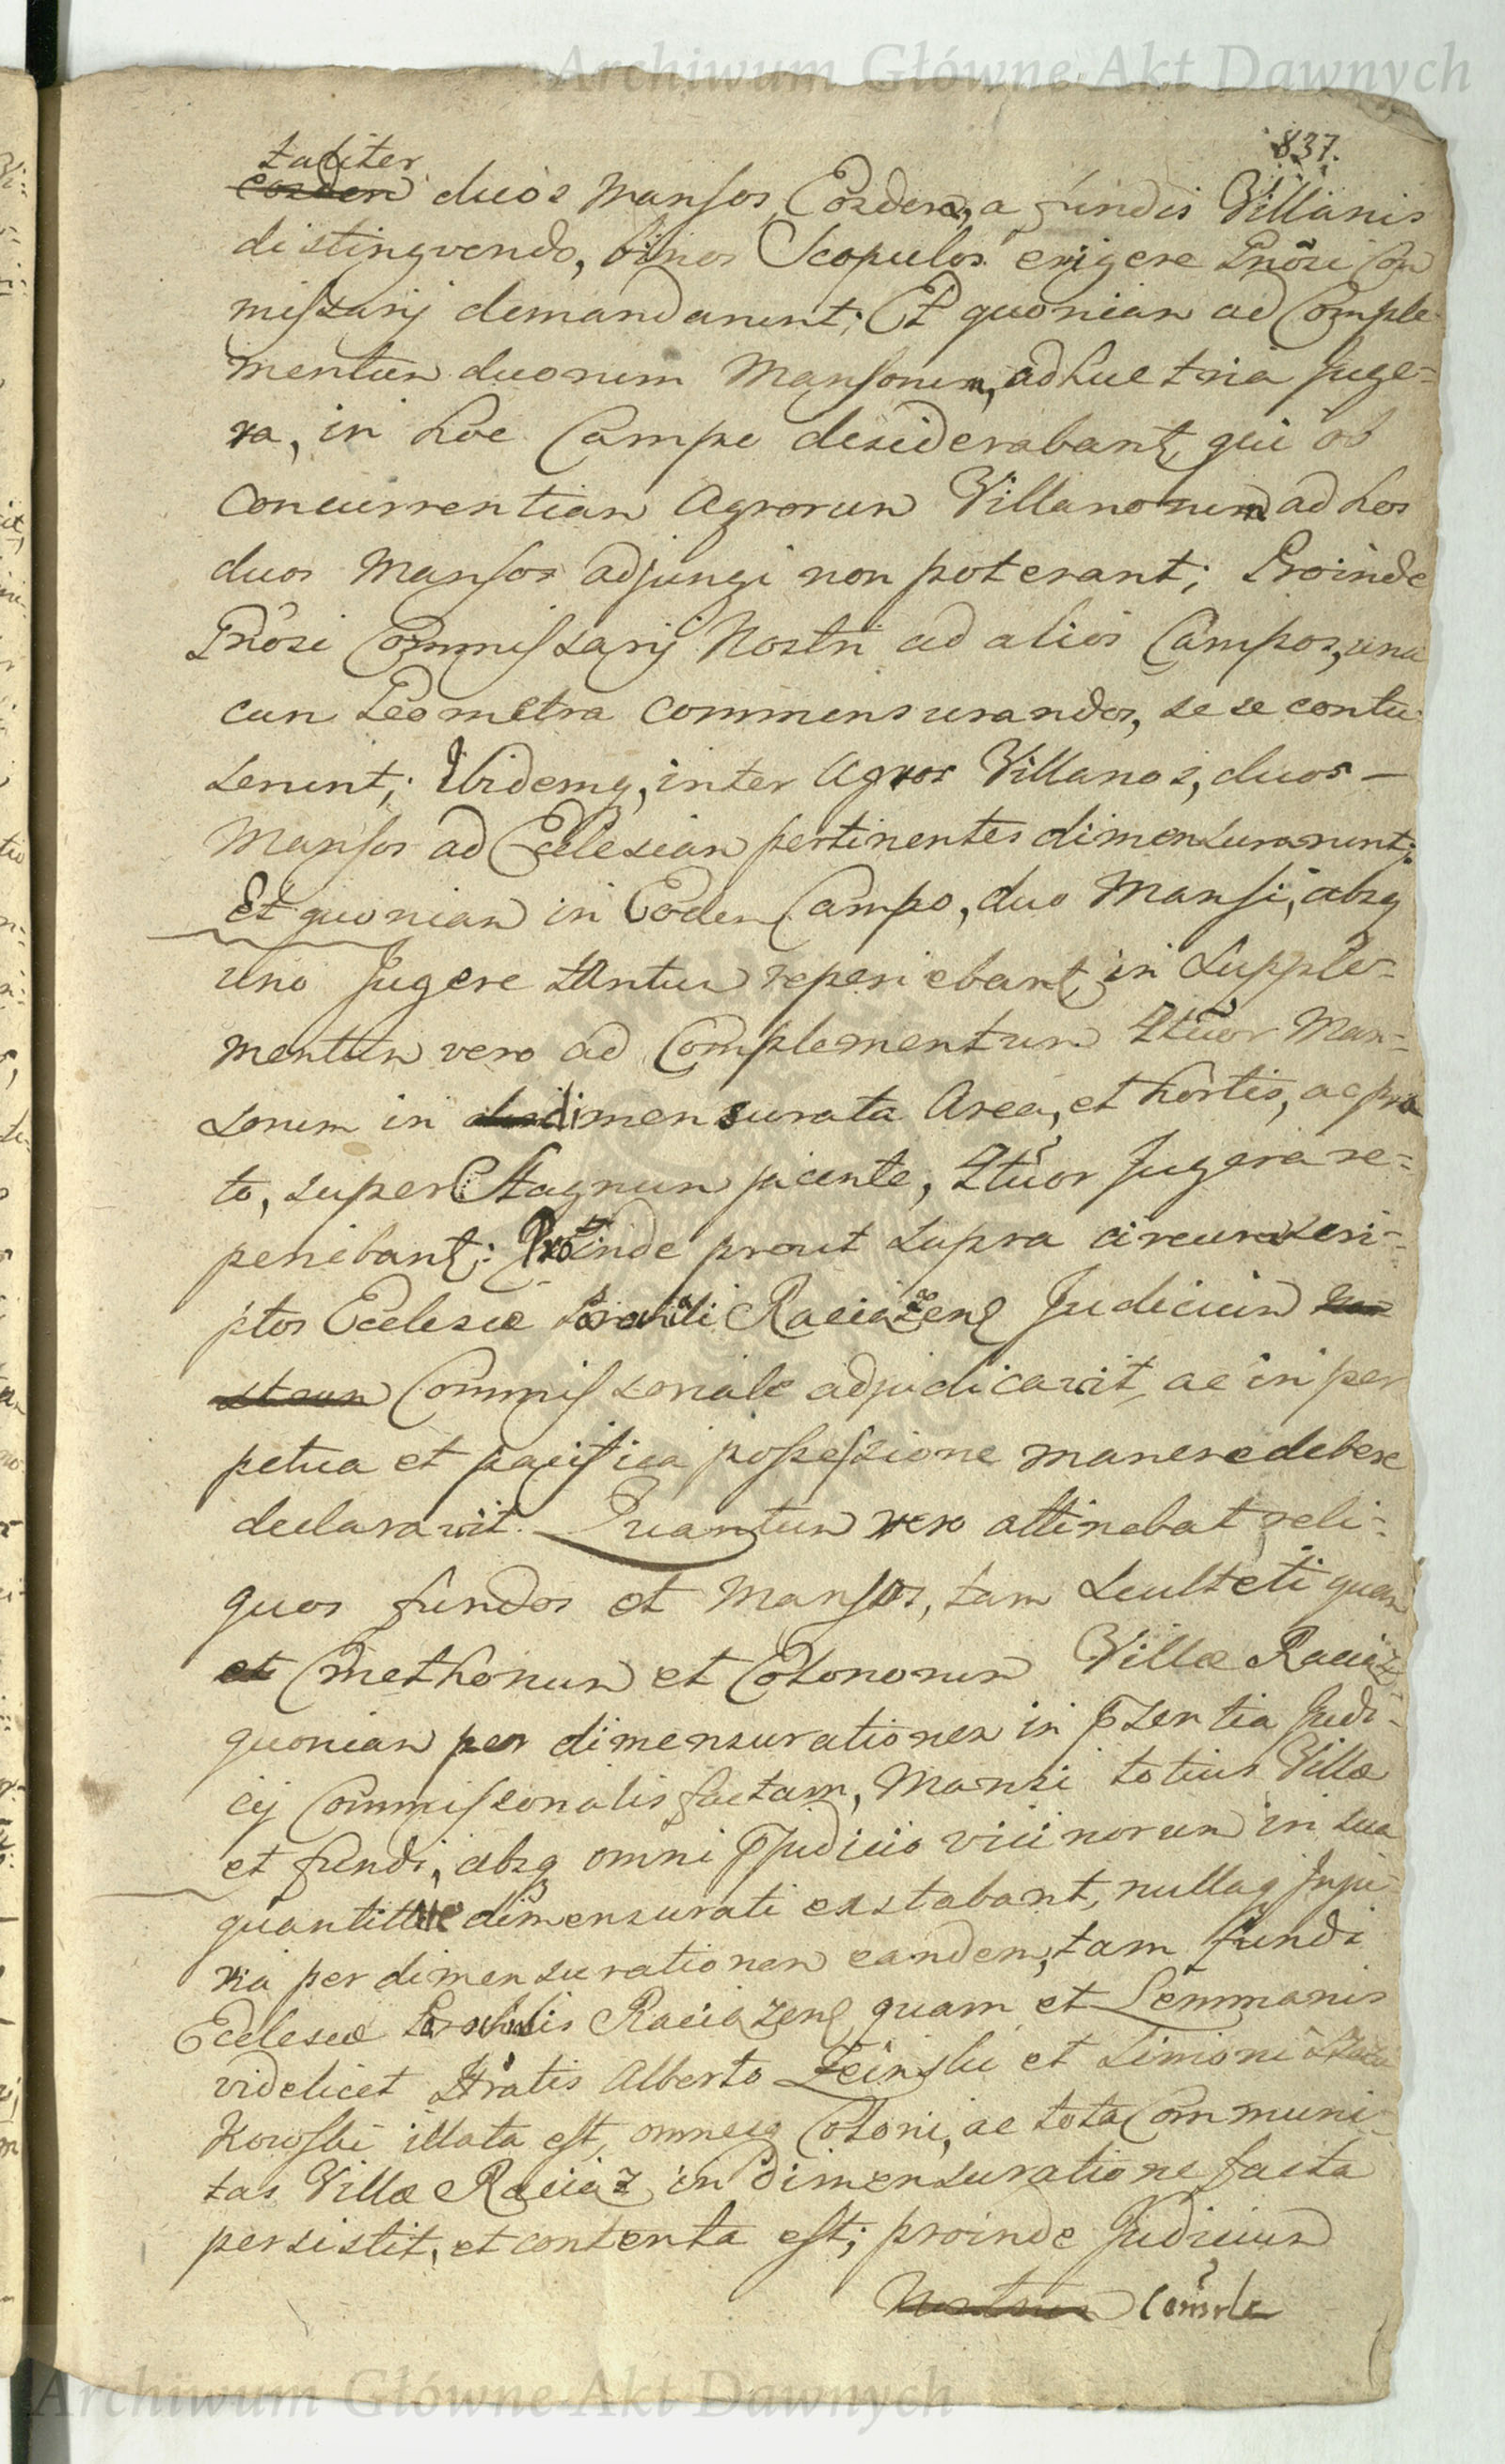 Archiwum Główne Akt Dawnych
837.
taliter
eosdem duos Mansos Eosdem, a fundis Villanis
distingvendo, binos Scopulos erigere Pñõsi Com
missarij demandarunt; Et quoniam ad Comple
mentum duorum Mansorum, adhuc tria Juge=
ra, in hoc Campo desiderabant, qui ob
concurrentiam Agrorum Villanorum ad hos
duos Mansos adjungi non poterant; Proinde
Pñõsi Commissarij Nostri ad alios Campos, una
cum Geometra commensurandos, sese contu
lerunt; Ibidemq, inter Agros Villanos, duos —
Mansos ad Ecclesiam pertinentes dimensurarunt;
Et quoniam in Eodem Campo, duo Mansi, absq
uno Jugere tantum reperiebant, in Supple=
mentum vero ad Complementum 4tuor Man=
sorum in dimensurata Area, et hortis, ac pra
to, super Stagnum jacente, 4tuor Jugera re=
periebant; Proinde prout supra circumscri=
ptos Ecclesiæ Racięzens Judicium
Commissoriale adjudicavit, ac in per
petua et pacifica possessione manere debere
declaravit. Quantum vero attinebat reli=
quos fundos et Mansos, tam Sculteti quam
et Cmethonum et Colonorum Villæ Raciąz
quoniam per dimensurationem in p̃sentia Judi=
cij Commissorialis factam, Mansi totius Villæ
et fundi, absq omni p̃judicio vicinorum in sua
quantitate dimensurati exstabant, nullaq Inju=
ria per dimensurationem eandem, tam fundi
Ecclesiæ Raciązens quam et Lemmanis
videlicet Stratis Alberto et Simoni
Kowski illata est, omnesq Coloni, ac tota Communi=
tas Villæ Raciąz in dimensuratione facta
persistit, et contenta est; proinde Judicium
Nostrum Comsrle
Archiwum Główne Akt Dawnych